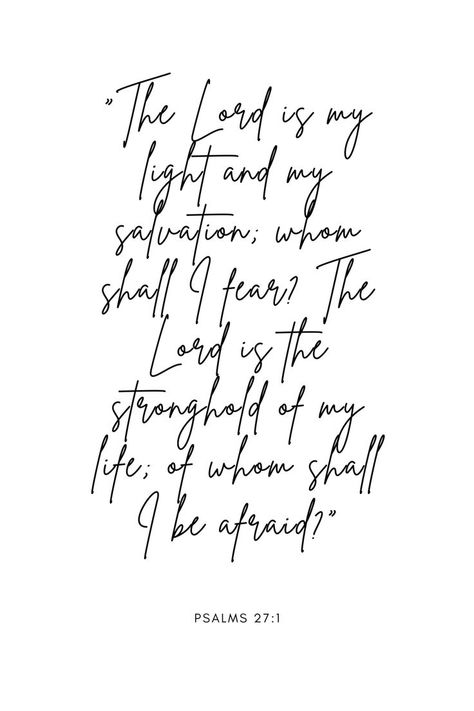 "The Lord is my
light and my
salvation; whom
shall I fear? The
Lord is the
stronghold of my
life; of whom shall
I be afraid?"
PSALMS 27:1